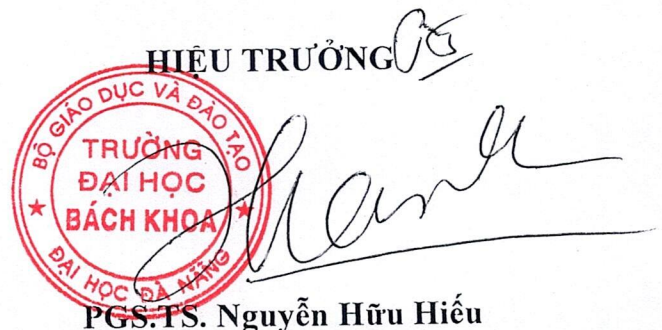 HIỆU TRƯỞNG
BỘ GIÁO DỤC VÀ ĐÀO TẠO
TRƯỜNG
ĐẠI HỌC
BÁCH KHOA
ĐẠI HỌC ĐÀ NẴNG
PGS.TS. Nguyễn Hữu Hiếu